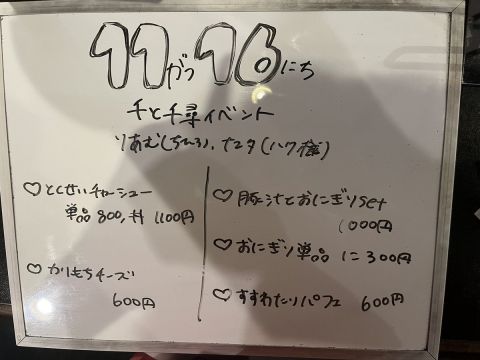 11がつ16にち
千と千尋イベント
りあむ(ちひろ)、ナユタ(ハク様)
♡とくせいチャーシュー
単品800,丼1100円
♡かりもちチーズ
600円
♡豚汁とおにぎりset
1000円
♡おにぎり単品 1コ300円
♡すすわたりパフェ 600円